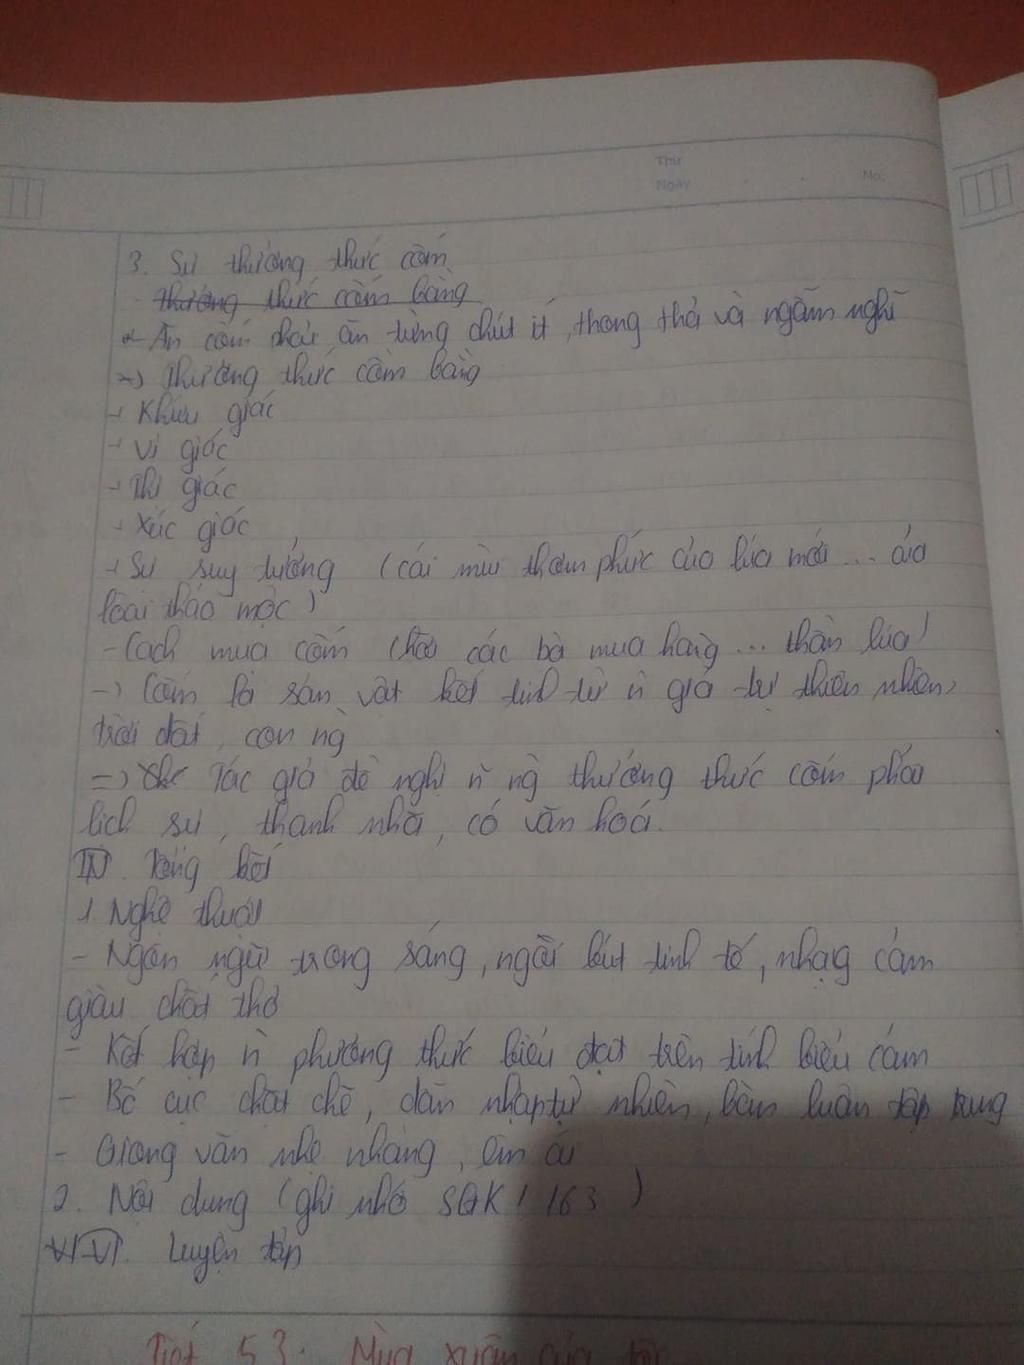 Thứ
Ngày
No:
3. Sự thưởng thức cốm
thưởng thức cốm bằng
- Ăn cốm phải ăn từng chút ít, thong thả và ngẫm nghĩ
-> Thưởng thức cốm bằng
+ Khứu giác
+ Vị giác
+ Thị giác
+ Xúc giác
+ Sự suy tưởng (cái mùi thơm phức của lúa mới ... của
loài thảo mộc)
- Cách mua cốm (hỡi các bà mua hàng ... thần lúa)
-> Cốm là sản vật kết tinh từ n giá trị thiên nhiên,
trời đất, con ng
=> Tác giả đề nghị n ng thưởng thức cốm phải
lịch sự, thanh nhã, có văn hoá.
IV. Tổng kết
1. Nghệ thuật
- Ngôn ngữ trong sáng, ngòi bút tinh tế, nhạy cảm
giàu chất thơ
- Kết hợp n phương thức biểu đạt trên tính biểu cảm
- Bố cục chặt chẽ, dẫn nhập tự nhiên, bàn luận tập trung
- Giọng văn nhẹ nhàng, êm ái
2. Nội dung (ghi nhớ SGK / 163)
VI. Luyện tập
Tiết 53: Mùa xuân của tôi